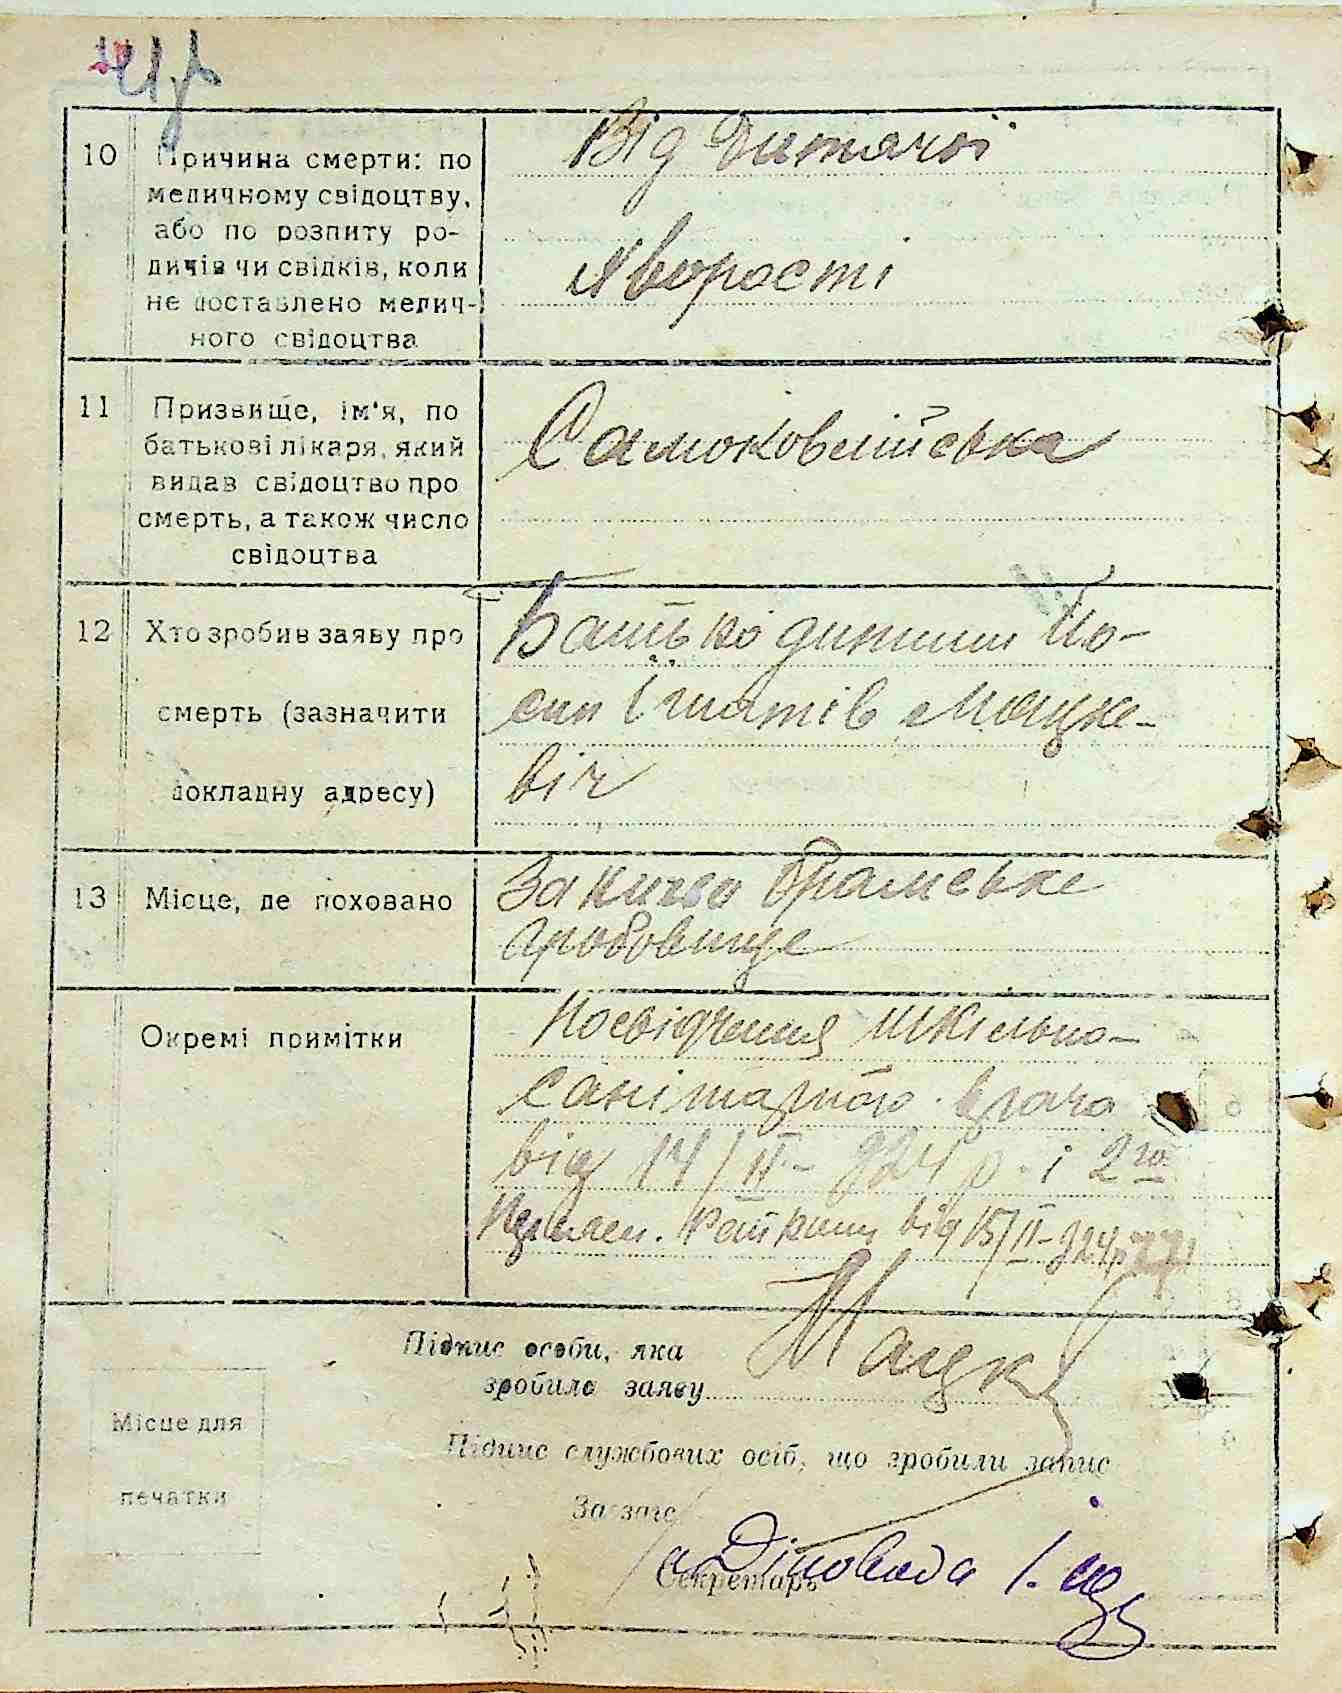 10 Причина смерти: по
медичному свідоцтву,
або по розпиту ро-
дичів чи свідків, коли
не поставлено медич-
ного свідоцтва
Від дитячої
хворості
11 Призвище, ім'я, по
батькові лікаря, який
видав свідоцтво про
смерть, а також число
свідоцтва
Самоковлійська
12 Хто зробив заяву про
смерть (зазначити
докладну адресу)
Батько дитини Йо-
сип Гнатів Мацке-
віч
13 Місце, де поховано
брамське
гробовище
Окремі примітки
Посвідчення шкільно-
санітарного врача
від 14/II - 924 р. і 2го
від 15/II - 924 р
Підпис особи, яка
зробила заяву Мацк
Підпис службових осіб, що зробили запис
За загс
Секретарь
Місце для
печатки